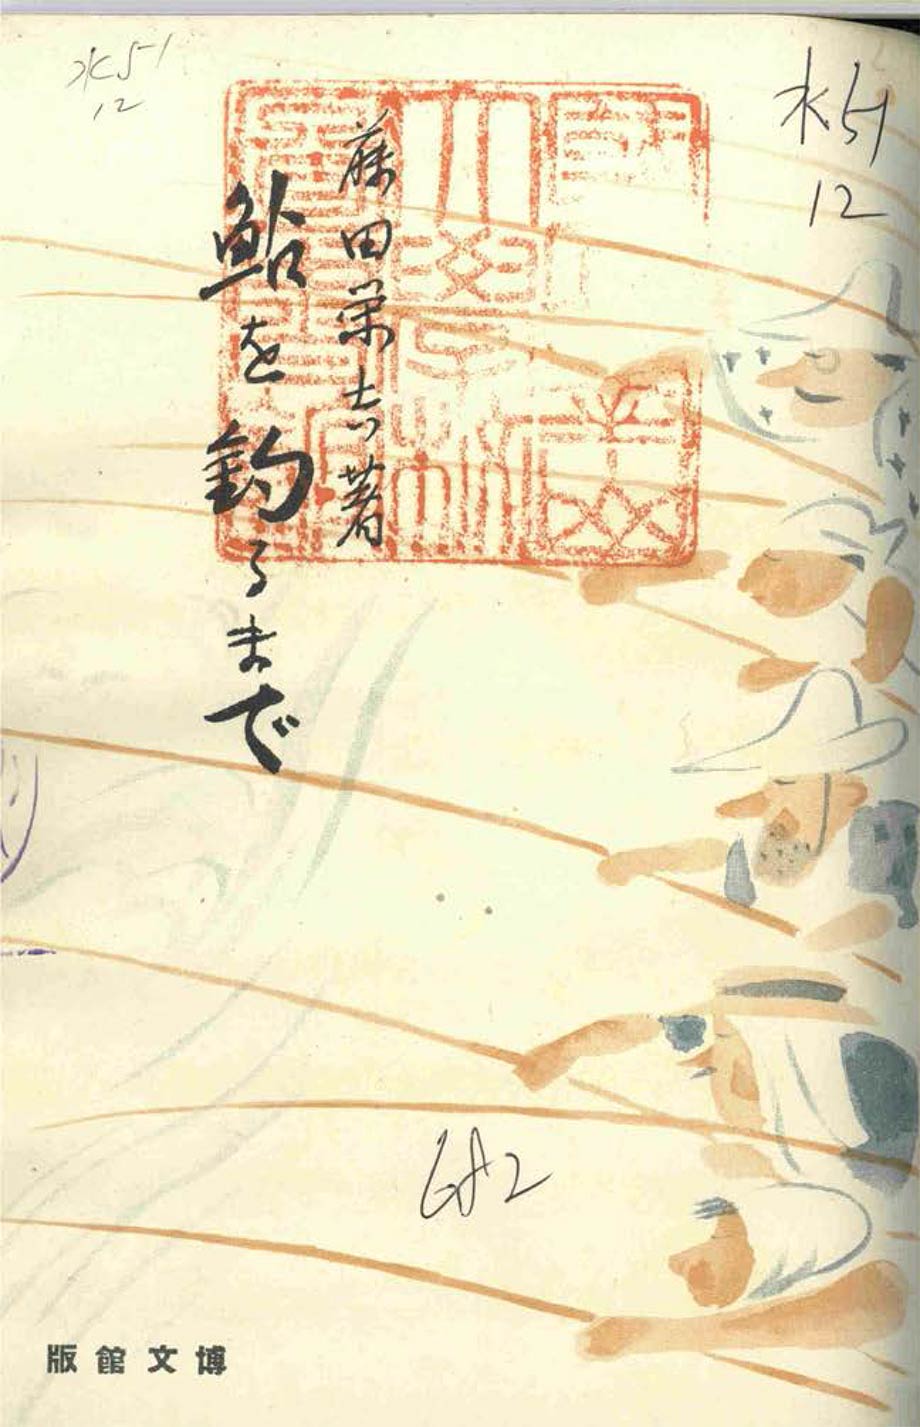 藤田栄吉著
鮎を釣るまで
水51
12
水51
12
682
博文館版